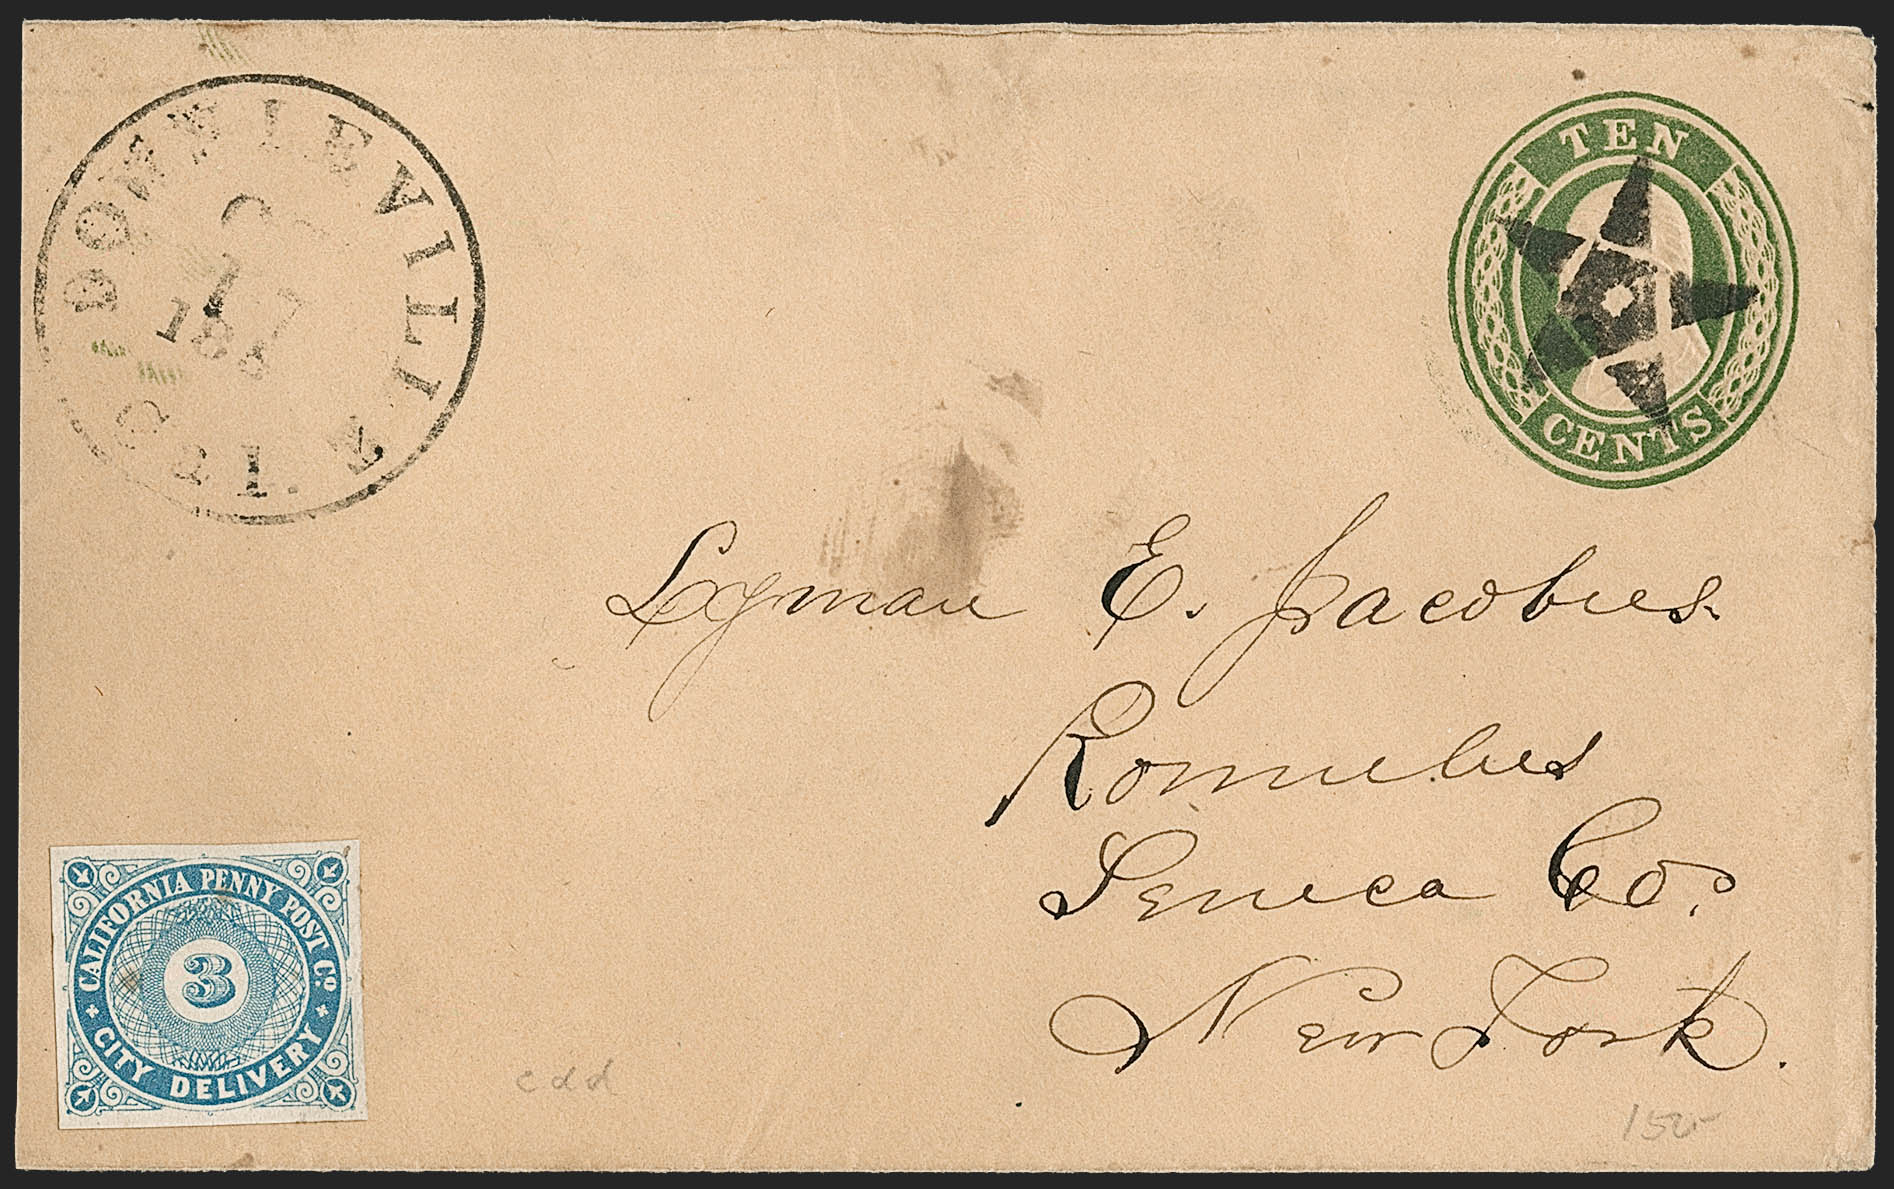 DOWNIEVILLE
CAL.
TEN
CENTS
Lyman E. Jacobus.
Romulus
Seneca Co.
New York.
CALIFORNIA PENNY POST CO.
3
CITY DELIVERY
cdd